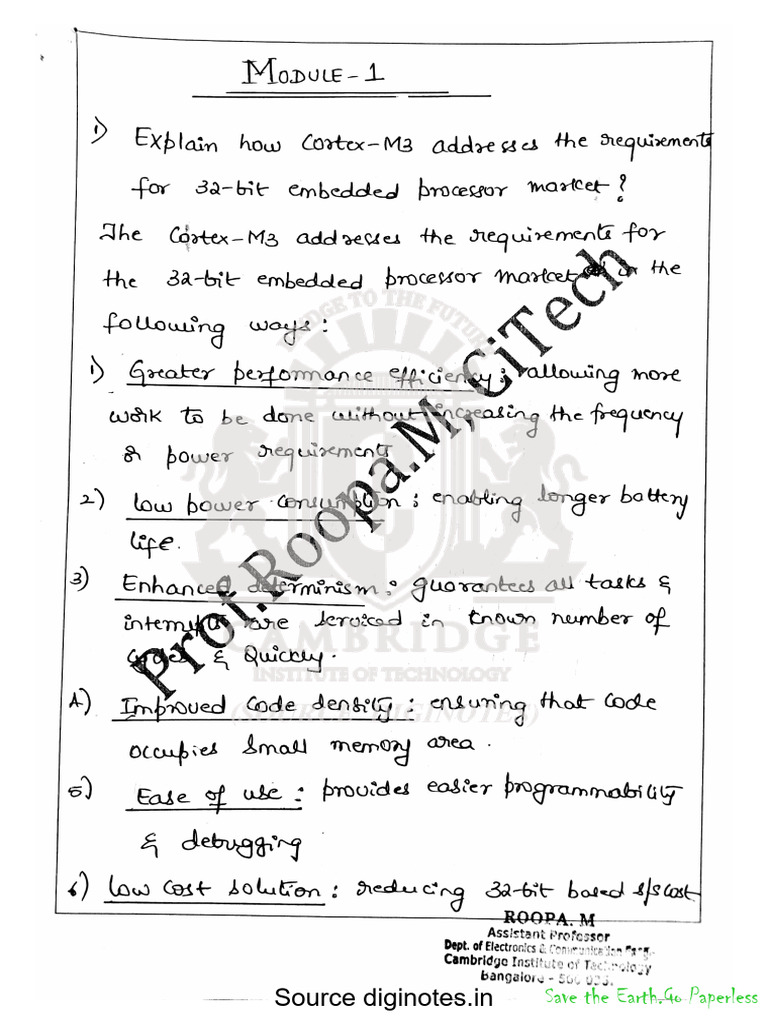 MODULE-1
1) Explain how Cortex-M3 addresses the requirements
for 32-bit embedded processor market?
The Cortex-M3 addresses the requirements for
the 32-bit embedded processor market in the
following ways:
1) Greater performance efficiency: allowing more
work to be done without increasing the frequency
or power requirements
2) Low power consumption: enabling longer battery
life.
3) Enhanced determinism: guarantees all tasks &
interrupts are serviced in known number of
cycles & Quickly.
4) Improved code density: ensuring that code
occupies small memory area.
5) Ease of use: provides easier programmability
& debugging
6) Low cost solution: reducing 32-bit based s/s cost
Prof.Roopa.M, CiTech
BRIDGE TO THE FUTURE
CAMBRIDGE
INSTITUTE OF TECHNOLOGY
(SOURCE DIGINOTES)
ROOPA. M
Assistant Professor
Dept. of Electronics & Communication Engg.
Cambridge Institute of Technology
Bangalore - 560 036.
Source diginotes.in
Save the Earth.Go Paperless